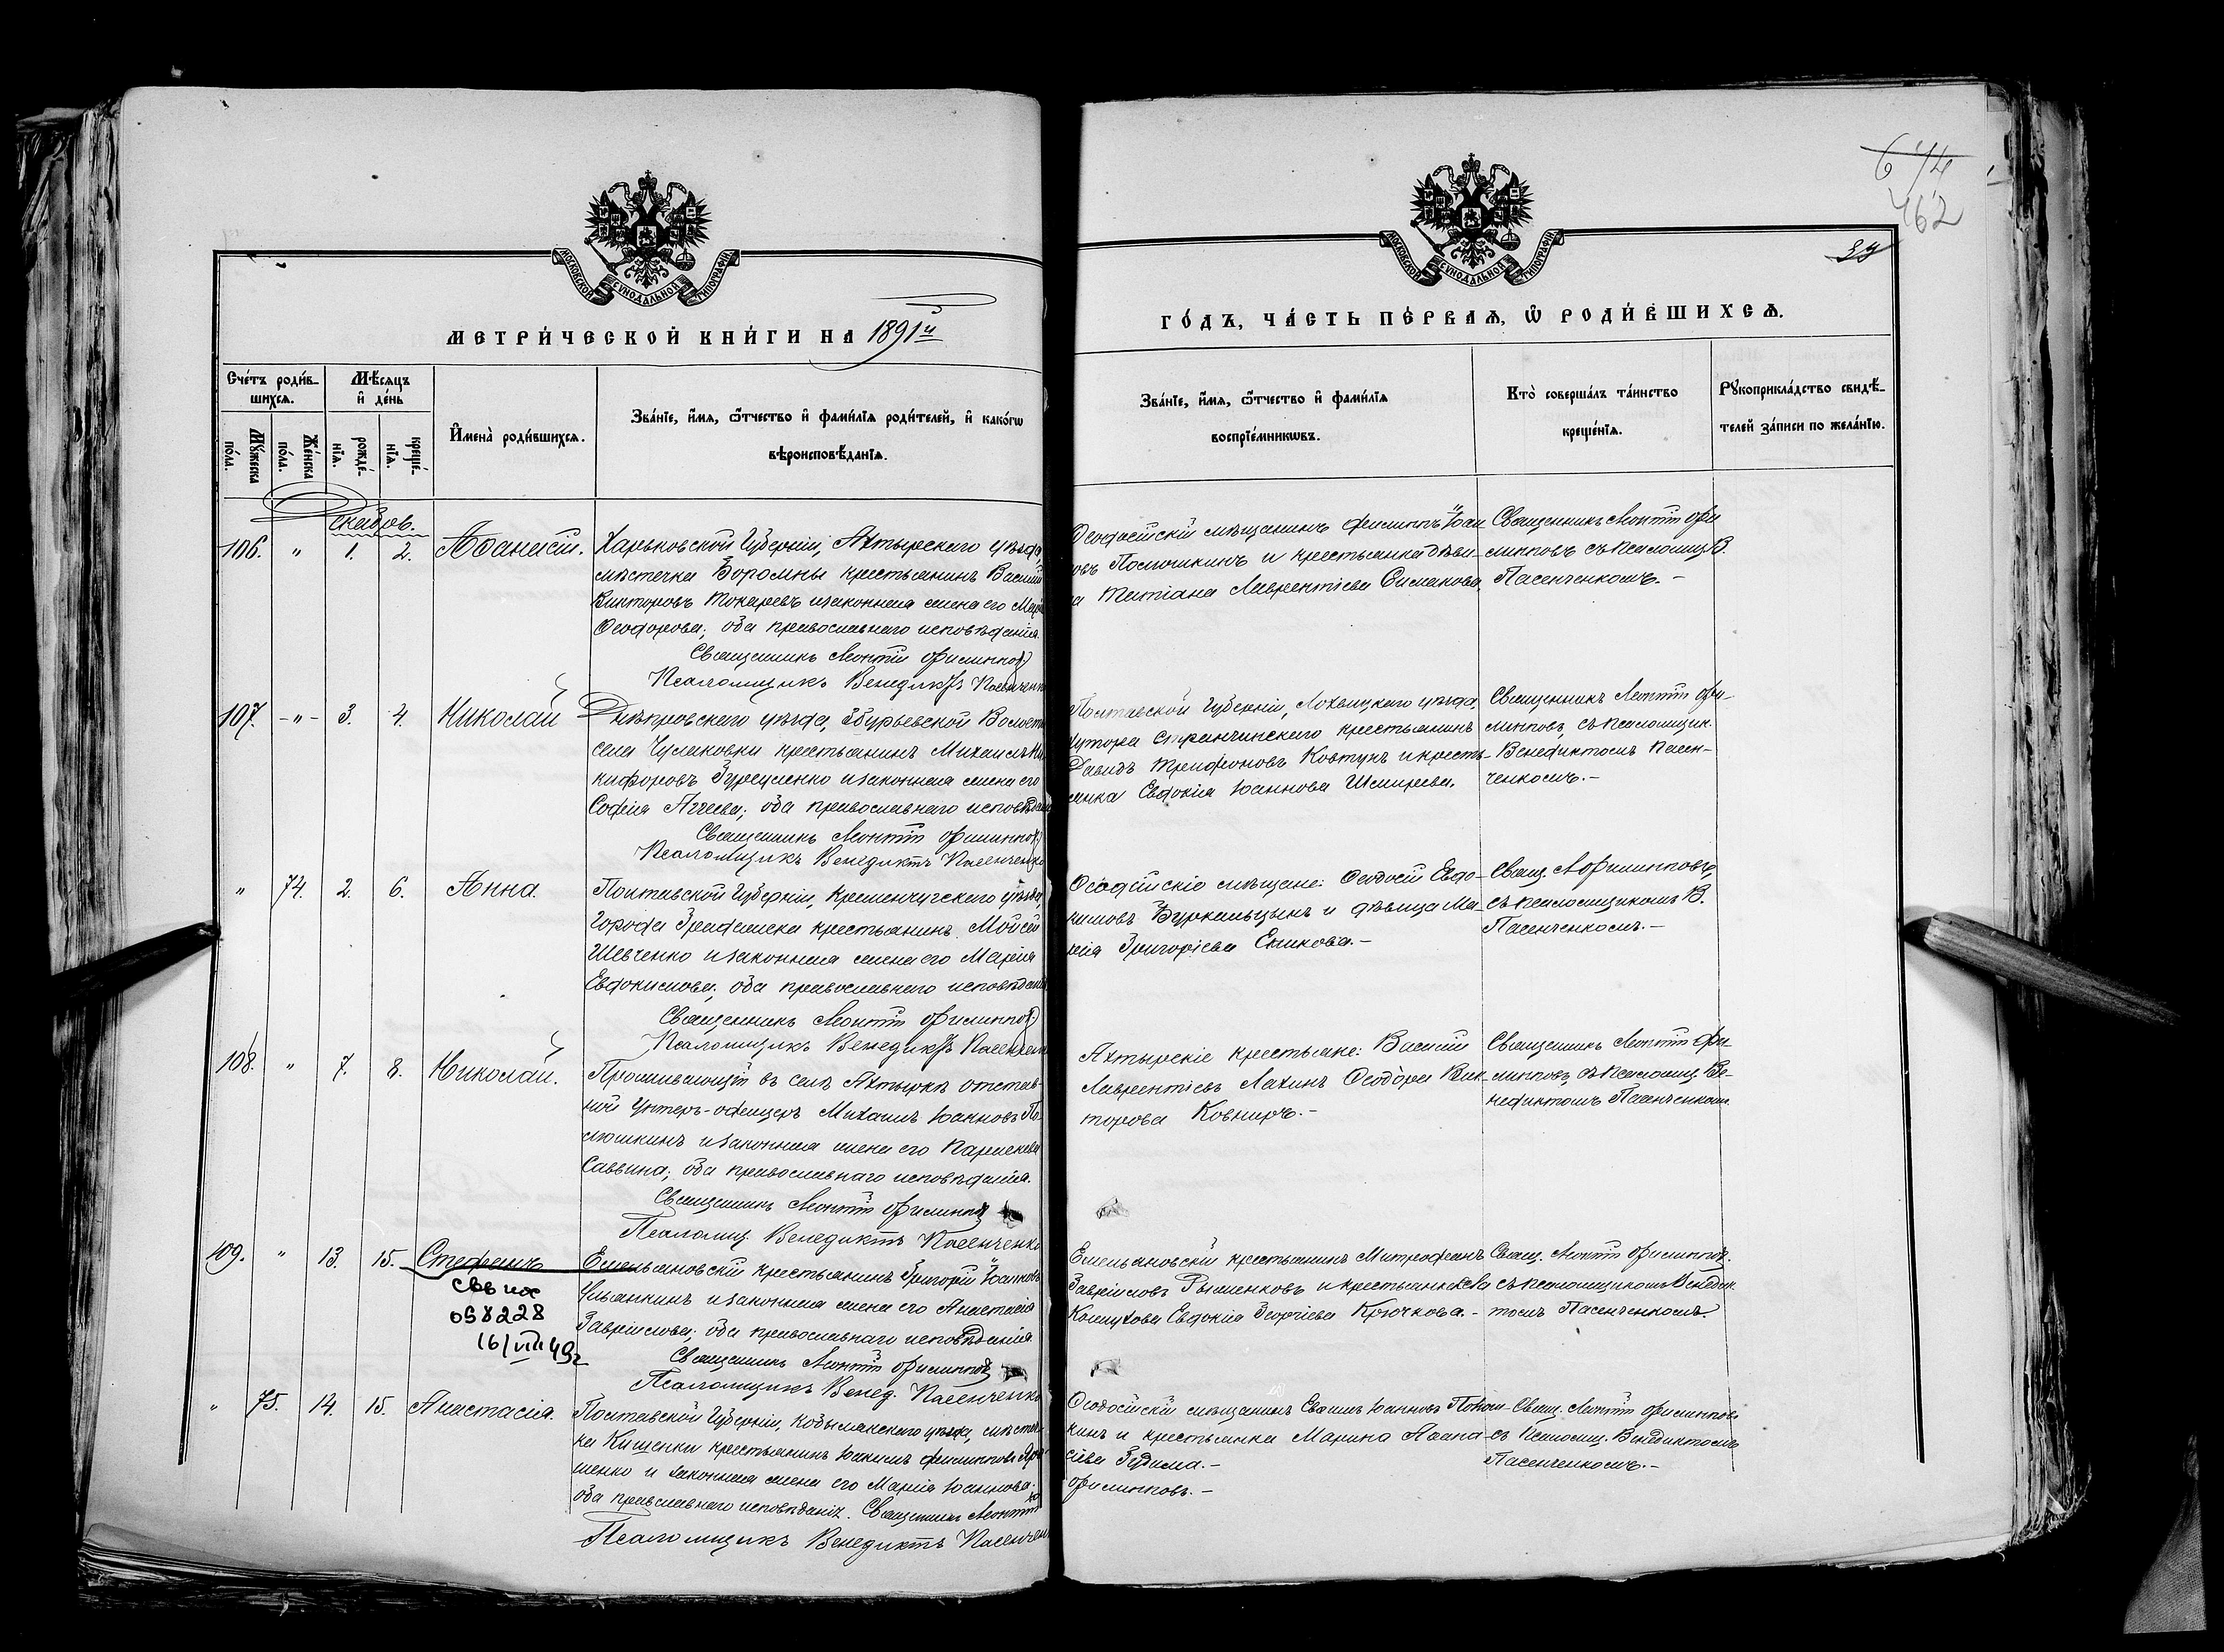 674
462
МОСКОВСКОЙ СУНОДАЛЬНОЙ ТИПОГРАФІИ
МОСКОВСКОЙ СУНОДАЛЬНОЙ ТИПОГРАФІИ
МЕТРИ́ЧЕСКОЙ КНИ́ГИ НА 1891й
ГО́ДЪ, ЧА́СТЬ ПЕ́РВАѦ, Ѡ РОДИ́ВШИХСѦ.
Сче́тъ роди́в-
шихсѧ.
Мѣ́сѧцъ
и҆ де́нь
Мꙋ́жеска
по́ла.
Же́нска
по́ла.
рожде́-
нїѧ.
креще́-
нїѧ.
И҆мена̀ роди́вшихсѧ.
Зва́нїе, и҆́мѧ, ѻ҆́тчество и҆ фами́лїѧ роди́телей, и҆ како́гѡ
вѣроисповѣ́данїѧ.
Зва́нїе, и҆́мѧ, ѻ҆́тчество и҆ фами́лїѧ
воспрїе́мникѡвъ.
Кто̀ соверша́лъ та́инство
креще́нїѧ.
Рꙋкоприкла́дство свидѣ́-
телей за́писи по жела́нїю.
Декабрь.
106. " 1. 2. Аѳанасій.
Харьковской Губерніи, Ахтырскаго уѣзда,
мѣстечка Боромны крестьянинъ Василій
Викторовъ Токаревъ и законная жена его Марія
Ѳеодорова; оба православнаго исповѣданія.
Священникъ Леонтій Филипповъ
Псаломщикъ Венедиктъ Пасенченко
Ѳеодосійскій мѣщанинъ Филиппъ Іоан
овъ и крестьянка дѣви
ца Татіана Лаврентіева Симакова.
Священникъ Леонтій Фи
липповъ съ псаломщ. В.
Пасенченкомъ.-
107. -"- 3. 4. Николай
Днѣпровскаго уѣзда, Збурьевской Волости
села Чулаковки крестьянинъ Михаилъ Ни
кифоровъ и законная жена его
Софія Аггеева; оба православнаго исповѣданія
Священникъ Леонтій Филипповъ
Псаломщикъ Венедиктъ Пасенченко
Полтавской Губерніи, Лохвицкаго уѣзда,
хутора крестьянинъ
Давидъ Трифоновъ Ковтунъ и кресть-
янка Евдокія Іоаннова
Священникъ Леонтій Фи-
липповъ, съ псаломщик.
Венедиктомъ Пасен-
ченкомъ.-
" 74. 2. 6. Анна.
Полтавской Губерніи, Кременчугскаго уѣзда,
города Градижска крестьянинъ Мойсей
Шевченко и законная жена его Марія
Евдокимова; оба православнаго исповѣданія
Священникъ Леонтій Филипповъ
Псаломщикъ Венедиктъ Пасенченко
Ѳеодосійскіе мѣщане: Ѳеодосій Евдо-
кимовъ и дѣвица Ма-
рія Григоріева Ежикова.-
Свящ. Л Филипповъ,
съ псаломщикомъ В.
Пасенченкомъ.-
108. " 7. 8. Николай.
Проживающій въ селѣ Ахтыркѣ отстав-
ной унтеръ-офицеръ Михаилъ Іоанновъ По
люшкинъ и законная жена его Параскева
Саввина; оба православнаго исповѣданія.
Священникъ Леонтій Филипповъ
Псаломщ. Венедиктъ Пасенченко
Ахтырскіе крестьяне: Василій
Лаврентіевъ Лахинъ Ѳеодора Вик-
торова Ковниръ.-
Священникъ Леонтій Фи-
липповъ, съ псаломщ. Ве-
недиктомъ Пасенченком.
109. " 13. 15. Стефанъ
свв их
098228
16/VIII 49г
Емельяновскій крестьянинъ Григорій Іоанновъ
Ульянкинъ и законная жена его Анастасія
Гавріилова; оба православнаго исповѣданія
Священникъ Леонтій Филипповъ
Псаломщикъ Венед. Пасенченко
Емельяновскій крестьянинъ Митрофанъ
Гавріиловъ и крестьянка села
Евдокія Георгіева Крючкова.-
Свящ. Леонтій Филипповъ.
съ псаломщикомъ Венедик
томъ Пасенченкомъ.
" 75. 14. 15. Анастасія.
Полтавской Губерніи, Кобыляцкаго уѣзда, мѣстеч
ка Кишенки крестьянинъ Іоакимъ Филипповъ
шенко и законная жена его Марія Іоаннова.
оба православнаго исповѣданія. Священникъ Леонтій
Псаломщикъ Венедиктъ Пасенченко
Ѳеодосійскій мѣщанинъ Іоанновъ
кинъ и крестьянка Марина Аѳана-
сіева
Филипповъ.-
Свящ. Леонтій Филипповъ
съ псаломщ. Венедиктомъ
Пасенченкомъ.-